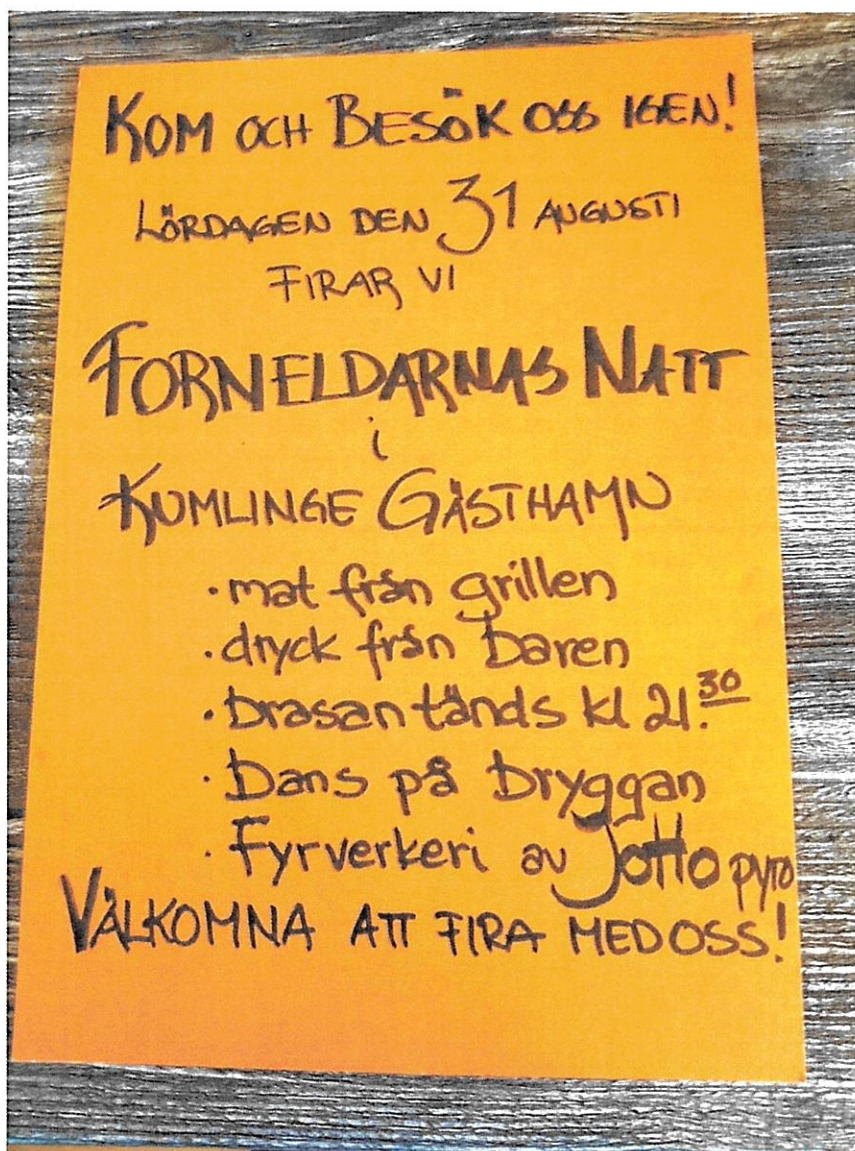 KOM OCH BESÖK OSS IGEN!
LÖRDAGEN DEN 31 AUGUSTI
FIRAR VI
FORNELDARNAS NATT
i
KUMLINGE GÄSTHAMN
· mat från grillen
· dryck från baren
· brasan tänds kl 21.30
· Dans på bryggan
· Fyrverkeri av JoHo pyro
VÄLKOMNA ATT FIRA MED OSS!